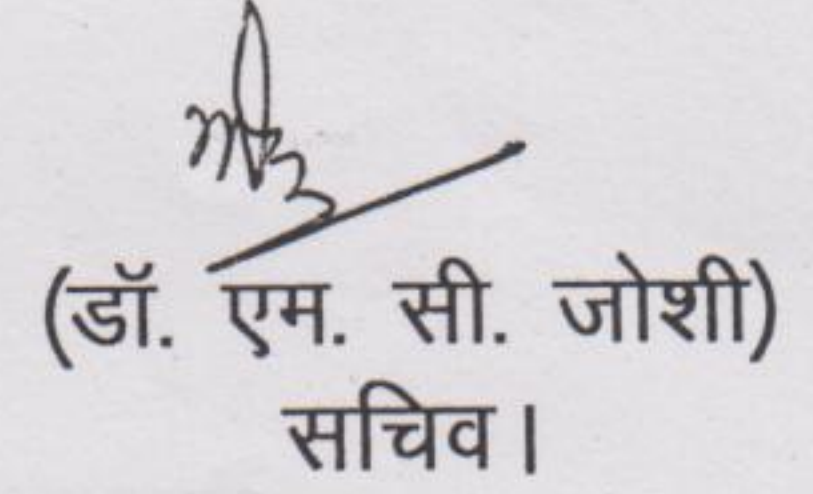 (डॉ. एम. सी. जोशी)
सचिव।